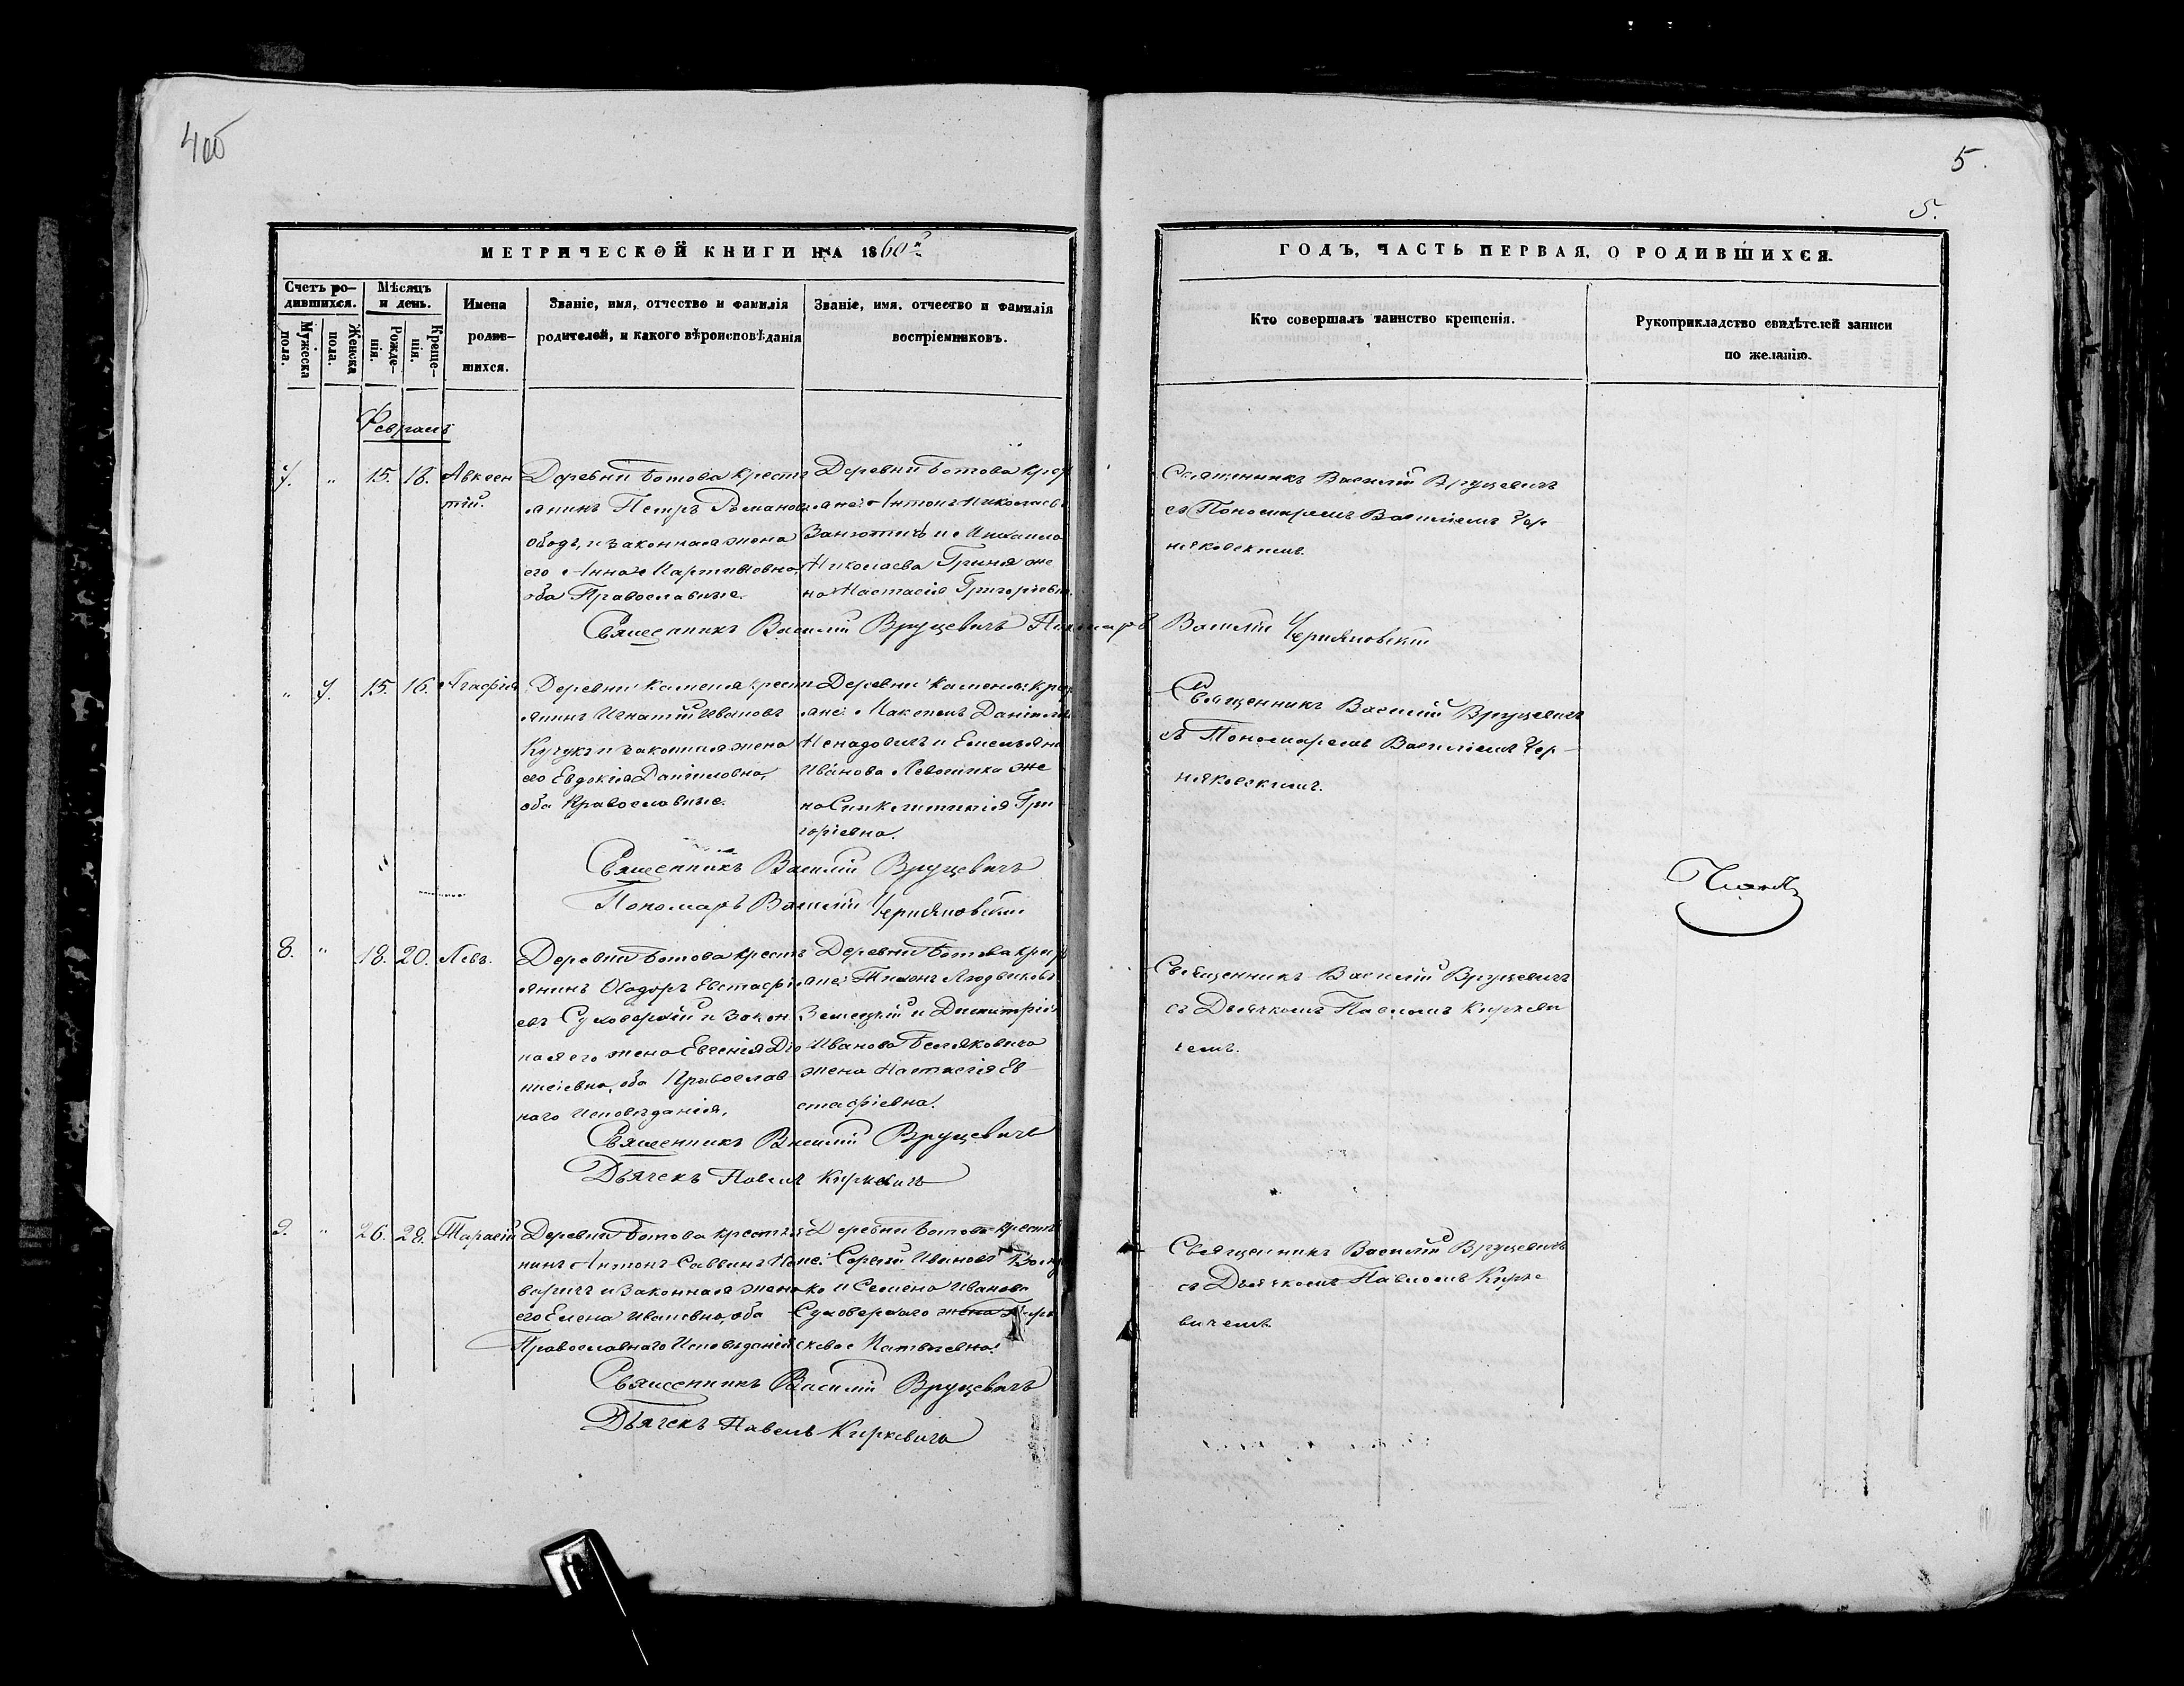 4об
5.
5.
МЕТРИЧЕСКОЙ КНИГИ НА 1860й
ГОДЪ, ЧАСТЬ ПЕРВАЯ, О РОДИВШИХСЯ.
Счетъ ро-
дившихся.
Мужеска
пола.
Женска
пола.
Мѣсяцъ
и день.
Рожде-
нія.
Креще-
нія.
Имена
родив-
шихся.
Званіе, имя, отчество и фамилія
родителей, и какого вѣроисповѣданія
Званіе, имя, отчество и фамилія
воспріемниковъ.
Кто совершалъ таинство крещенія.
Рукоприкладство свидѣтелей записи
по желанію.
Февраль
7. " 15. 18. Авксен
тій.
Деревни Ботова крестъ
янинъ Петръ Романовъ
и законная жена
его Анна Мартиновна,
оба Православные.
Деревни Ботова крес
яне: Антонъ Николаевъ
и Михаила
Николаева Гриня же
на Настасія Григоріевна.
Священникъ Василій Вруцевичъ
съ Пономаремъ Василіемъ Чер
няковскимъ.
Священникъ Василій Вруцевичъ Пономарь Василій Черняковскій
" 7. 15. 16. Агафія
Деревни Каменя крест
янинъ Игнатій Ивановъ
Кучукъ и законная жена
его Евдокія Даніиловна,
оба Православные.
Деревни Каменя: крес
яне: Максимъ Даніиловъ
Ненадовичъ и Емельяна
Иванова Левошика же
на Синклитикія Гри
горіевна.
Священникъ Василій Вруцевичъ
съ Пономаремъ Василіемъ Чер-
няковскимъ.
Священникъ Василій Вруцевичъ
Пономарь Василій Черняковскій
8. " 18. 20. Левъ.
Деревни Ботова крестъ
янинъ Ѳеодоръ Евстафі
евъ Суховерхій и закон
ная его жена Евгенія Діо
нисіевна, оба Православ
наго Исповѣданія.
Деревни Ботова крест
яне: Тихонъ Людвиковъ
Земецкій и Димитрія
Иванова Беляковича
жена Настасія Ев-
стафіевна.
Священникъ Василій Вруцевичъ
съ Дьячкомъ Павломъ Киркеви
чемъ.
Священникъ Василій Вруцевичъ
Дьячекъ Павелъ Киркевичъ
9. " 26. 28. Тарасій
Деревни Ботова крестъя
нинъ Антонъ Саввинъ
и законная жена
его Елена Ивановна, оба
Православнаго Исповѣданія
Деревни Ботова крестъ
яне: Сергій Ивановъ
и Семена Иванова
Суховерхаго жена Пара
скева Матвѣевна.
Священникъ Василій Вруцевичъ
съ Дьячкомъ Павломъ Кирке
вичемъ.
Священникъ Василій Вруцевичъ
Дьячекъ Павелъ Киркевичъ